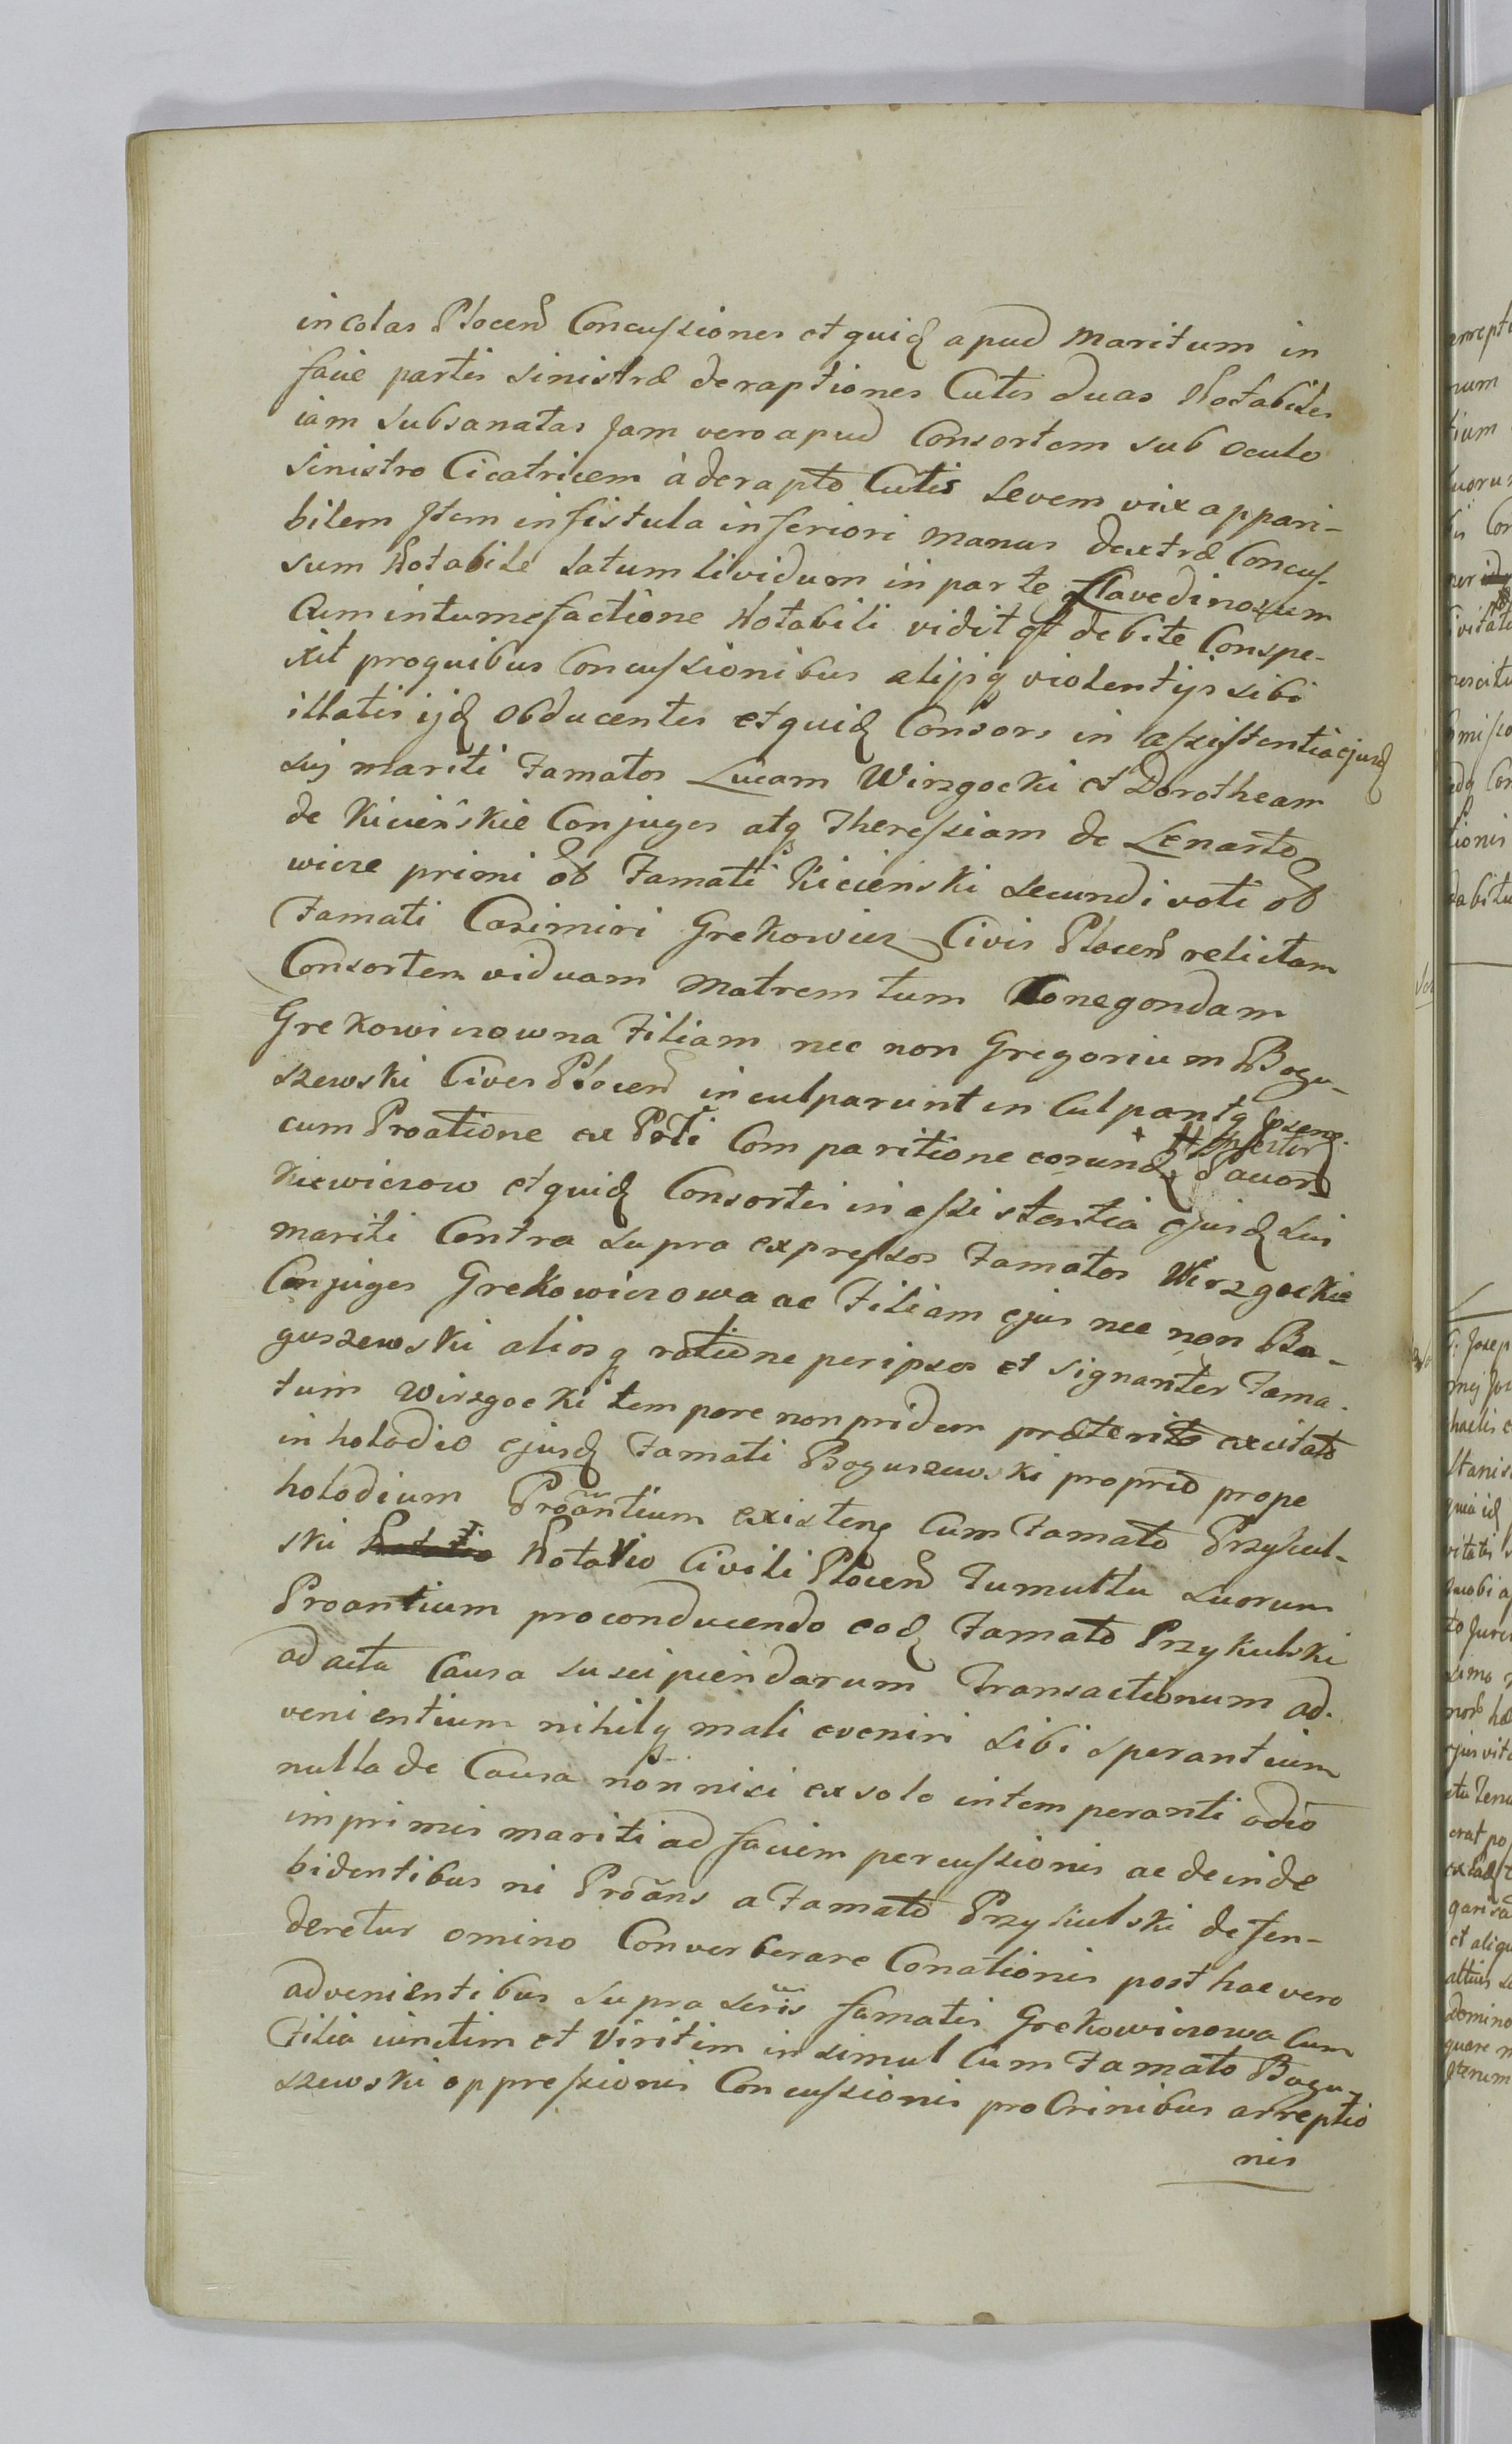 incolas Plocen Concussiones et quid apud Maritum in
facie partis sinistræ deraptiones Cutis duas Notabiles
iam subsanatas Jam vero apud Consortem sub oculo
Sinistro Cicatricem à derapto Cutis Levem vix appari-
bilem Item in fistula inferiori manus dextræ Concus-
sum Notabile Latum lividum in parte flavedinosum
Cum intumefactione Notabili vidit et debite Conspe-
xit pro quibus Concussionibus alijsq violentijs sibi
illatis ijd Obducentes et quid Consors in assistentia ejusd
sui mariti Famatos Lucam Wirzgocki et Dorotheam
de Kicieńskie Conjuges atq Theressiam de Lenarto
wicze primi ol Famati Kicienski secundi voti ol
Famati Casimiri Grekowicz Civis Plocen relictam
Consortem viduam Matrem tum Konegondam
Grekowiczowna Filiam nec non Gregorium Bogu-
szewski Cives Plocen inculparunt in Culpantq
cum Proatione ex Pti Comparitione eorund
kiewiczow et quid Consortis in assistentia ejusd sui
mariti Contra supra expressos Famatos Wirzgockie
Conjuges Grekowiczowa ac Filiam ejus nec non Bo-
guszewski aliosq ratione per ipsos et signanter Fama-
tum Wirzgocki tempore non pridem præterito excitato
in holodio ejusd Famati Boguszewski proprio prope
holodium Proantium existeng Cum Famato Przykul-
ski Notario Civili Plocen Tumultu suorum
Proantium pro conducendo eod Famato Przykulski
ad acta Causa suscipiendarum Transactionum ad-
venientium nihilq mali eveniri sibi sperantium
nulla de Causa non nisi ex solo intemperanti odio
imprimis mariti ad faciem percussionis ac deinde
bidentibus ni Proans a Famato Przykulski defen-
deretur omino Converberare Conationis post hac vero
advenientibus supra scris famatis Grekowiczowa Cum
Filia iunctim et viritim in simul Cum Famato Bogu-
szewski oppressionis Concussionis pro Crinibus arreptio
nis